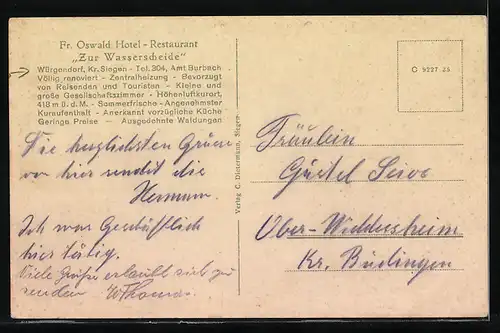 Fr. Oswald Hotel - Restaurant
„Zur Wasserscheide"
Würgendorf, Kr. Siegen - Tel. 304, Amt Burbach
Völlig renoviert - Zentralheizung - Bevorzugt
von Reisenden und Touristen - Kleine und
große Gesellschaftszimmer - Höhenluftkurort,
418 m ü. d. M. - Sommerfrische - Angenehmster
Kuraufenthalt - Anerkannt vorzügliche Küche
Geringe Preise — Ausgedehnte Waldungen
Die herzlichsten Grüsse
von hier sendet die
Hermann.
Ich war Geschäftlich
hier tätig.
Viele Grüße erlaubt sich zu
senden W Thomas.
Verlag C. Dietermann, Siegen
C 9227 25
Fräulein
Gustel
Ober-Widdersheim
Kr. Büdingen